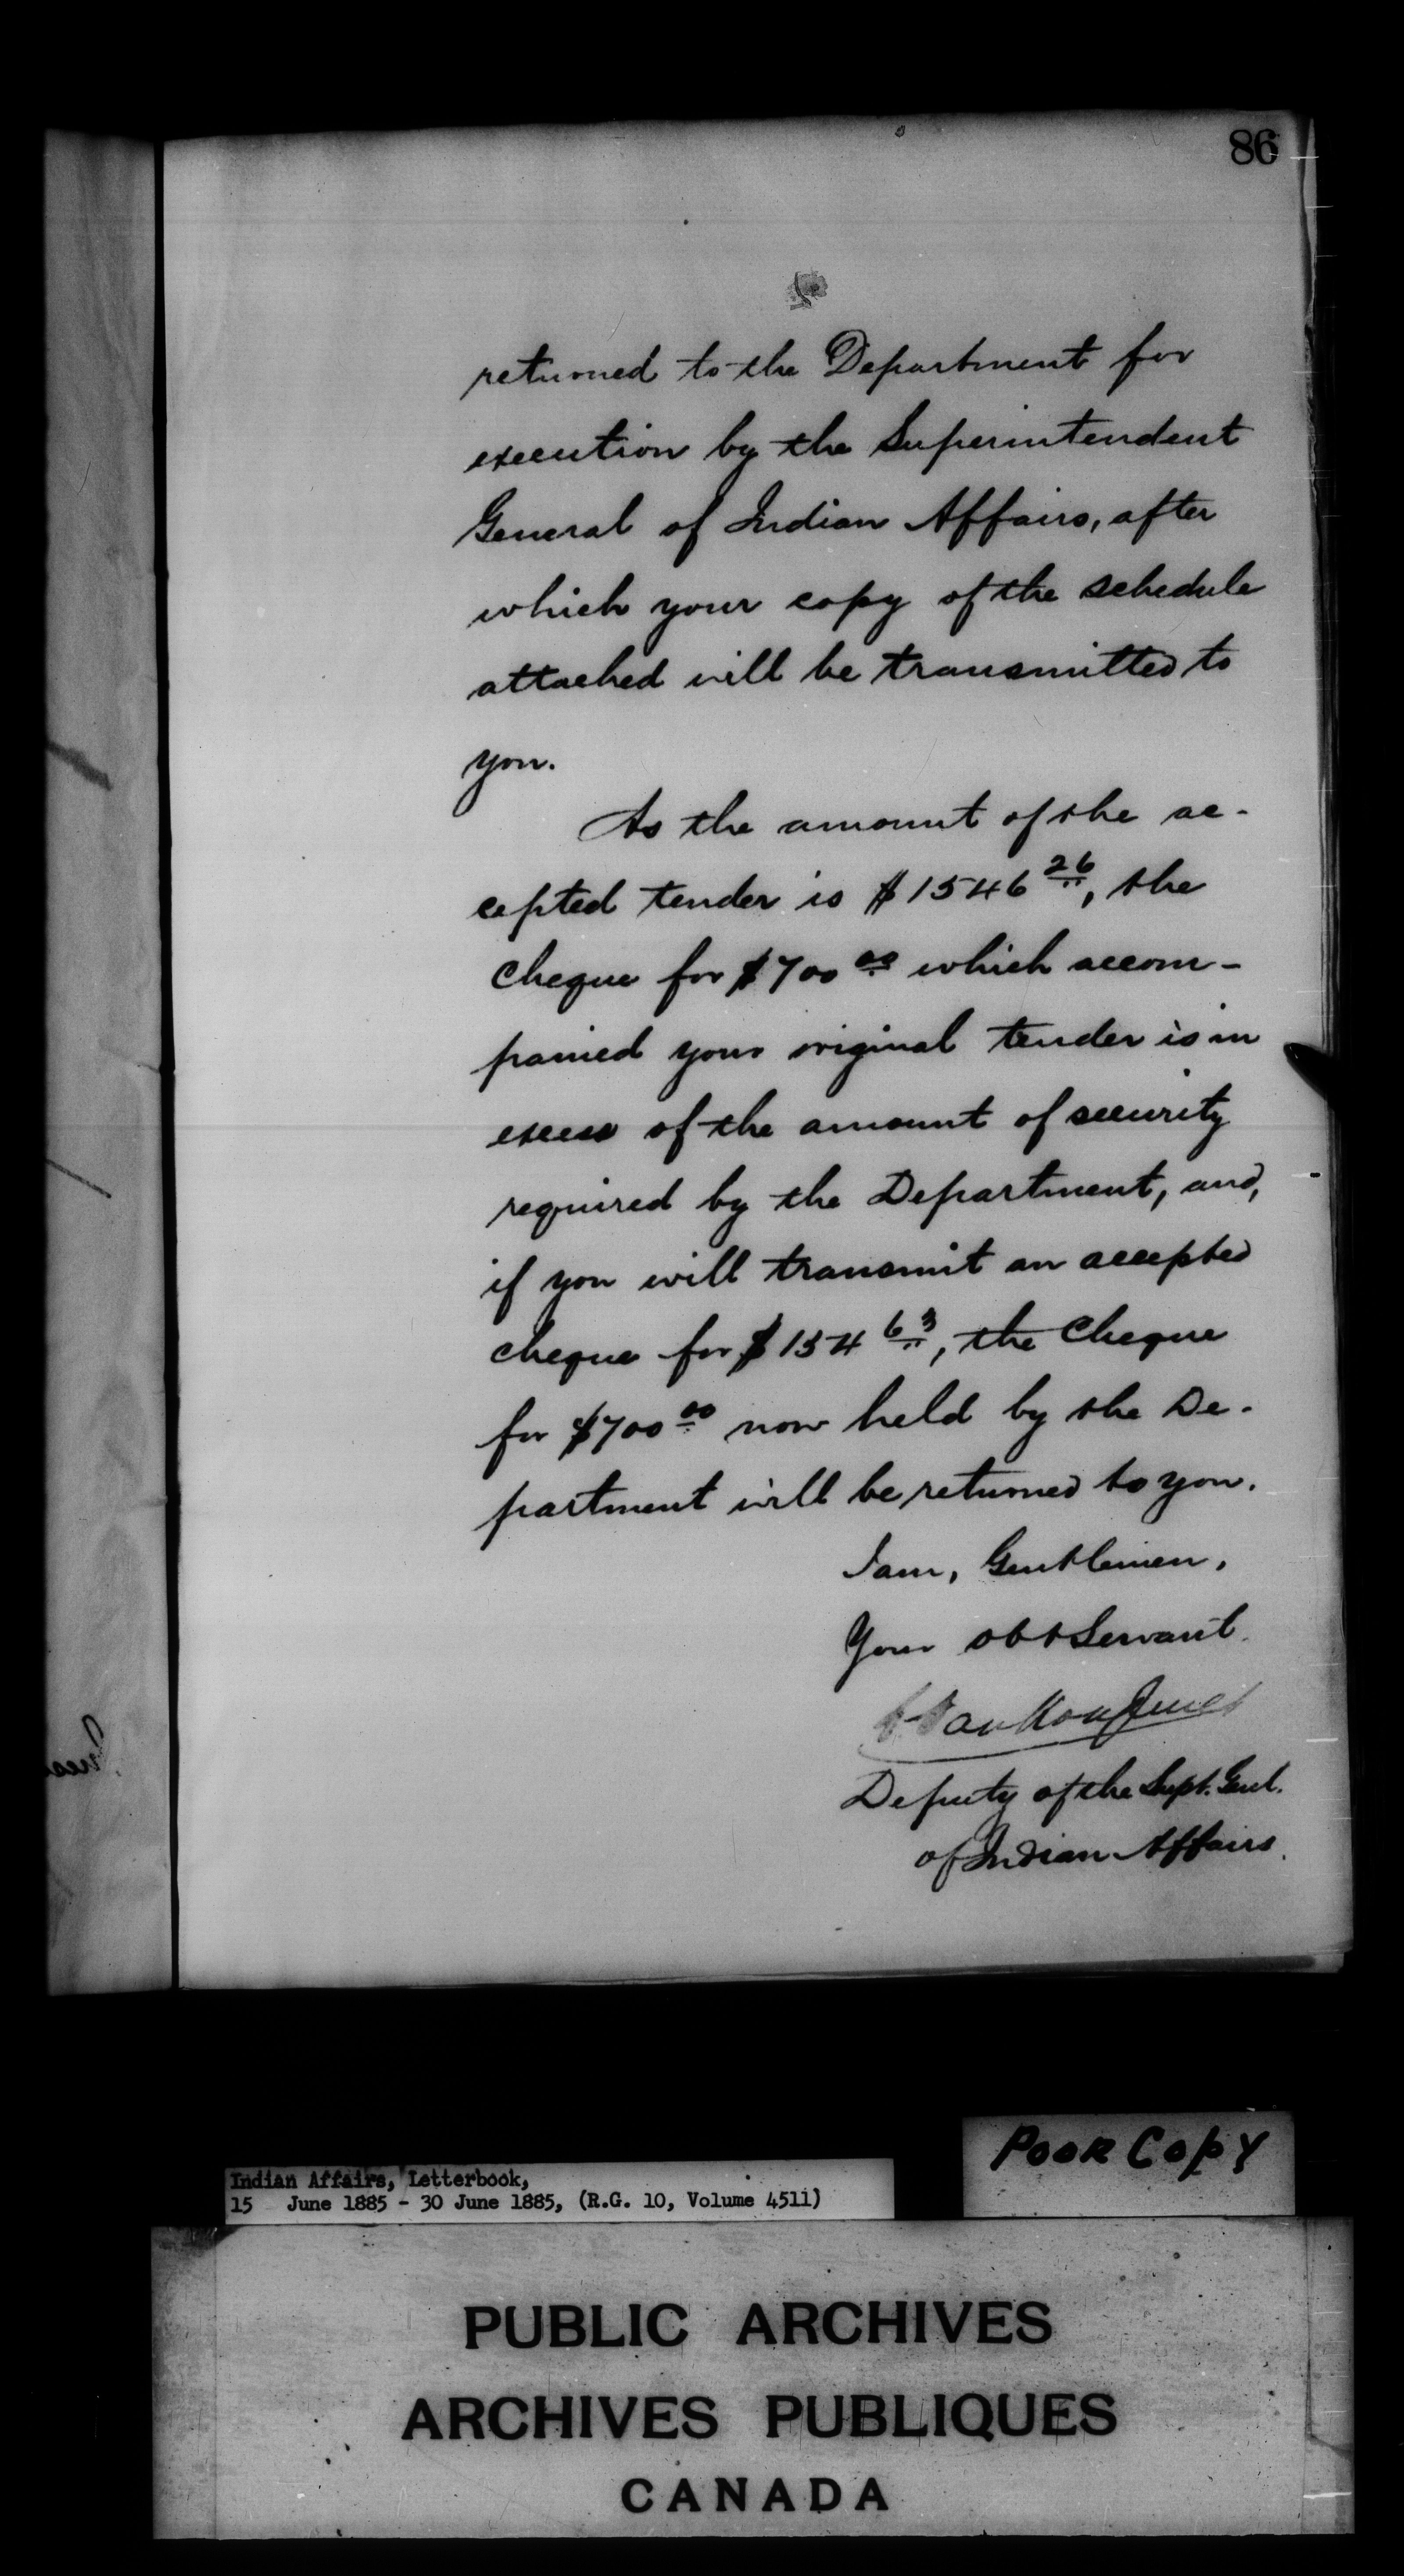 86
returned to the Department for
execution by the Superintendent
General of Indian Affairs, after
which your copy of the schedule
attached will be transmitted to
you.
As the amount of the ac-
cepted tender is $1546 26, the
cheque for $700 00 which accom-
panied your original tender is in
excess of the amount of security
required by the Department, and,
if you will transmit an accepted
cheque for $154 63, the Cheque
for $700 00 now held by the De-
partment will be returned to you.
I am, Gentlemen,
Your obt Servant.
L. VanKoughnet
Deputy of the Supt. Genl.
of Indian Affairs.
Poor Copy
Indian Affairs, Letterbook,
15 June 1885 - 30 June 1885, (R.G. 10, Volume 4511)
PUBLIC ARCHIVES
ARCHIVES PUBLIQUES
CANADA